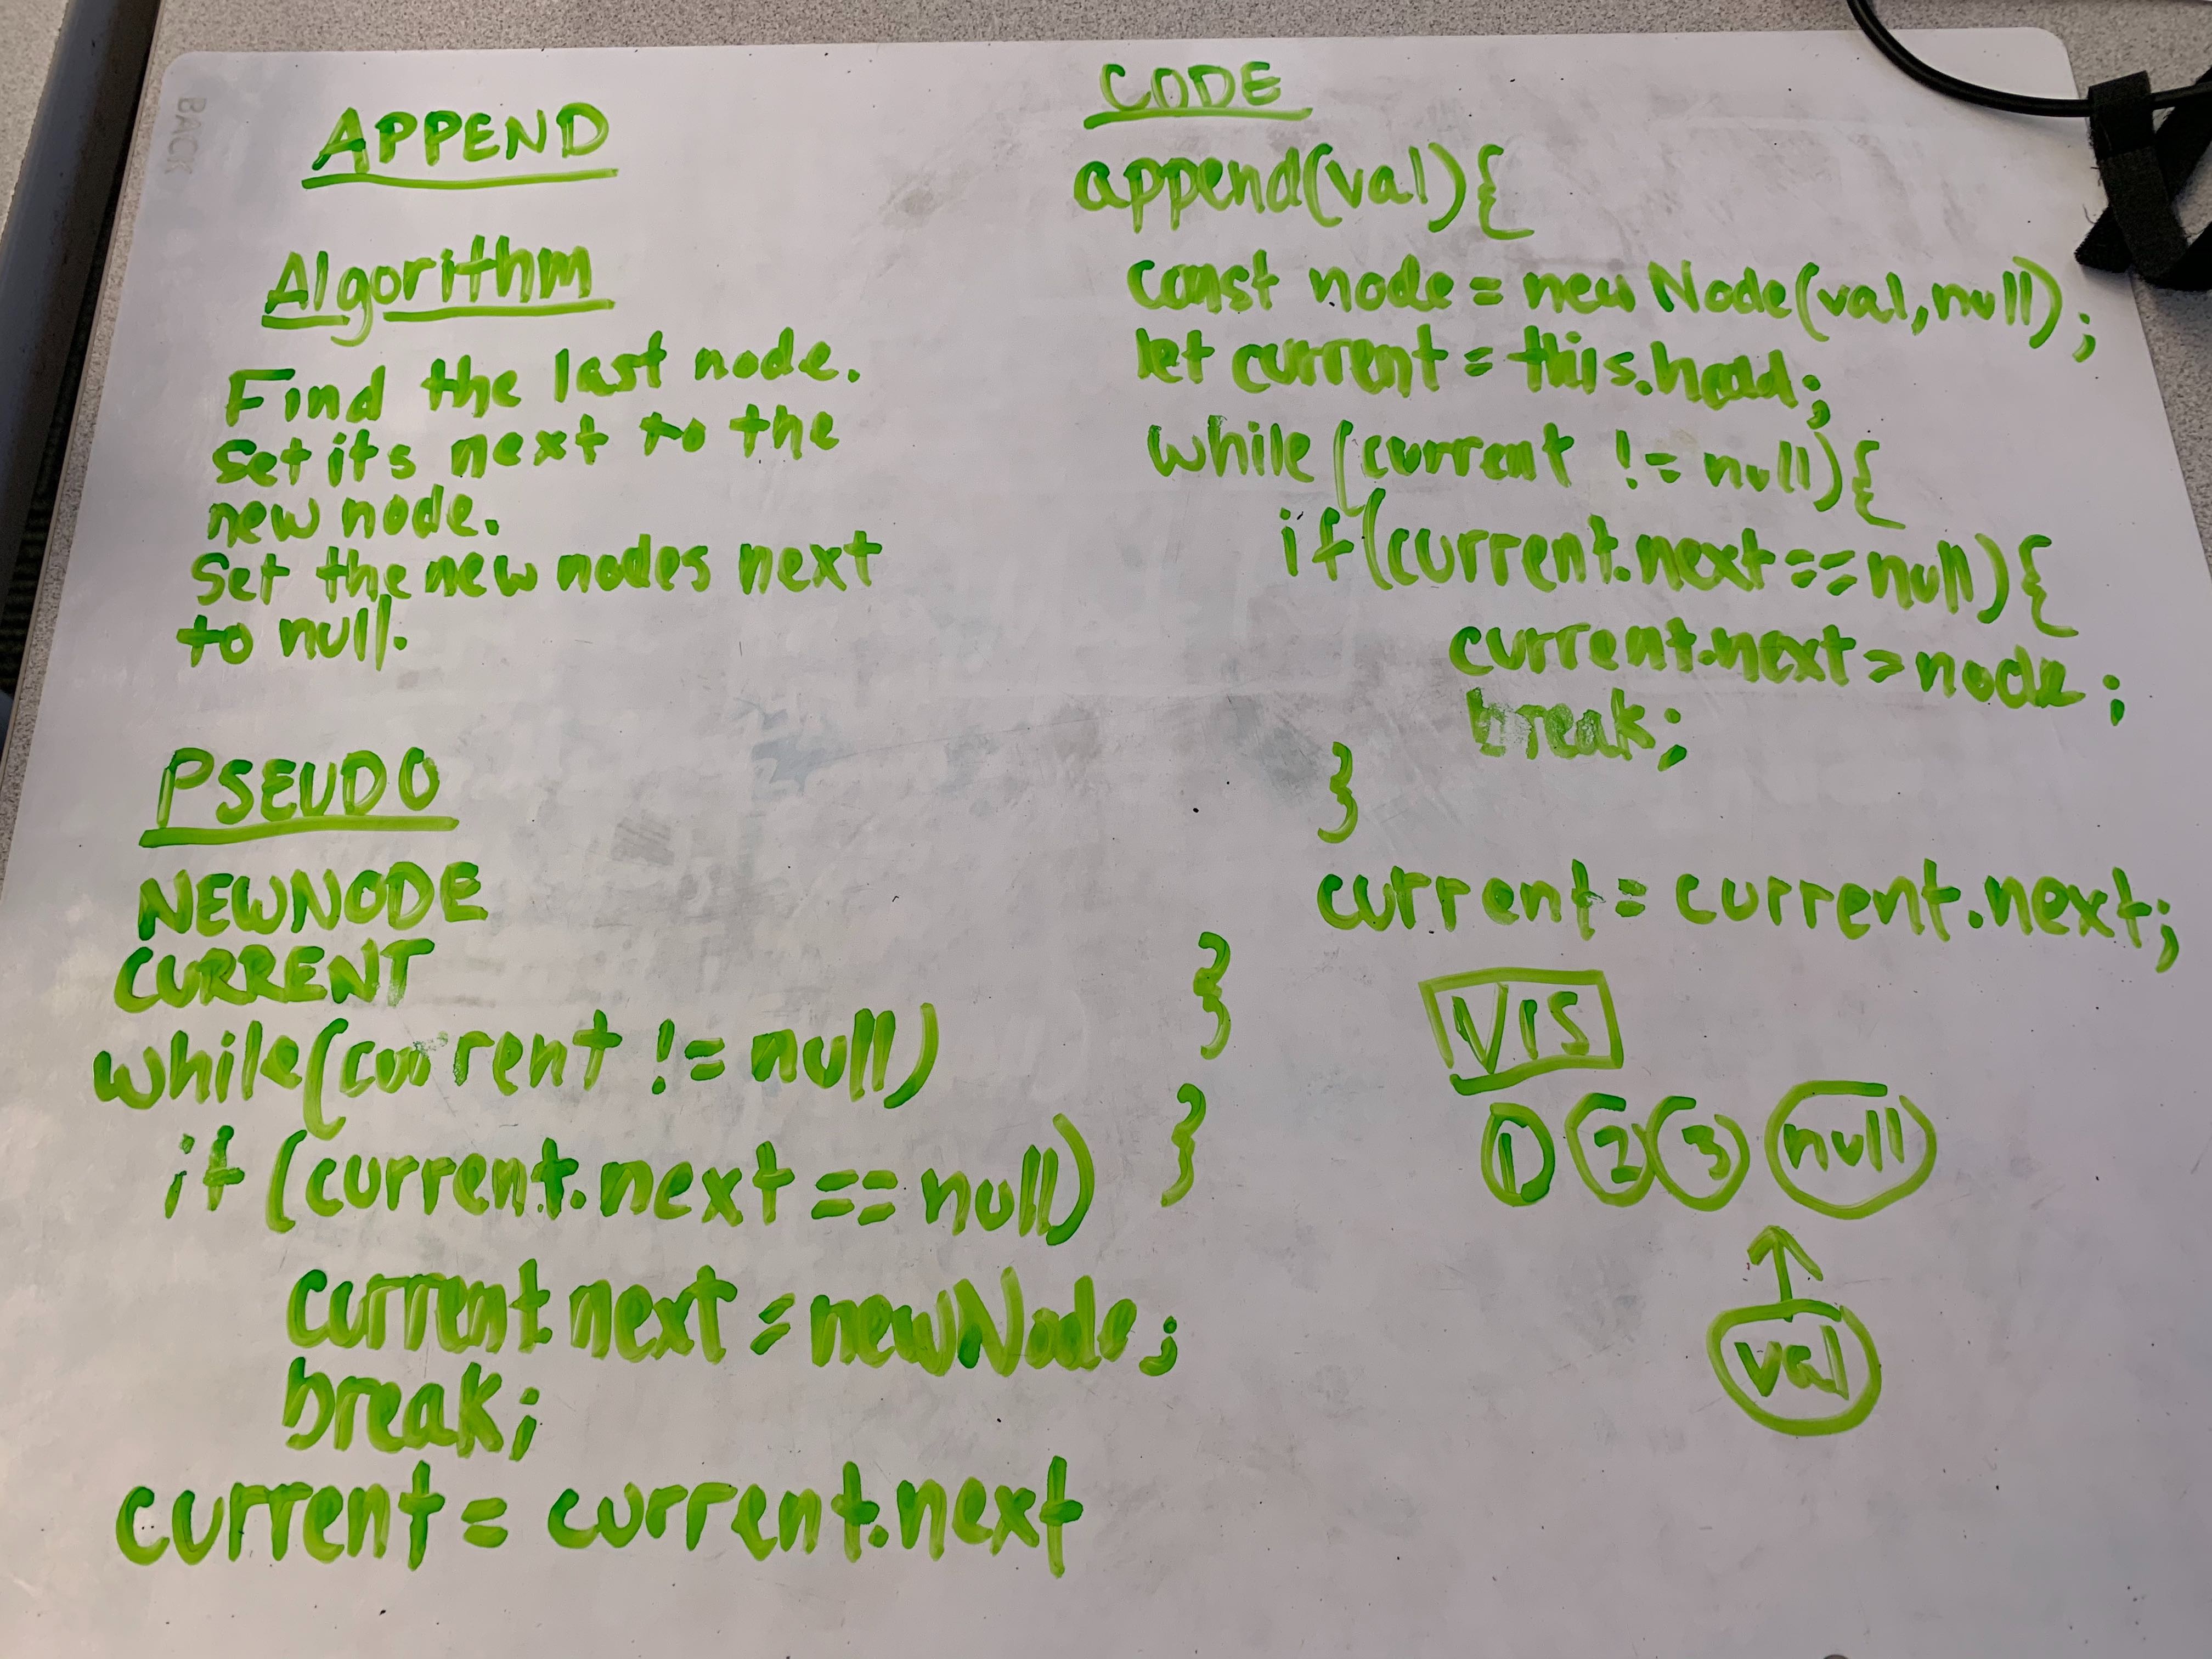 BACK
APPEND
Algorithm
Find the last node.
Set its next to the
new node.
Set the new nodes next
to null.
PSEUDO
NEWNODE
CURRENT
while(current != null)
if (current.next == null)
current.next = newNode;
break;
current = current.next
CODE
append(val){
const node = new Node(val,null);
let current = this.head;
while (current != null){
if(current.next == null){
current.next = node;
break;
}
current = current.next;
}
}
VIS
1 2 3 null
val